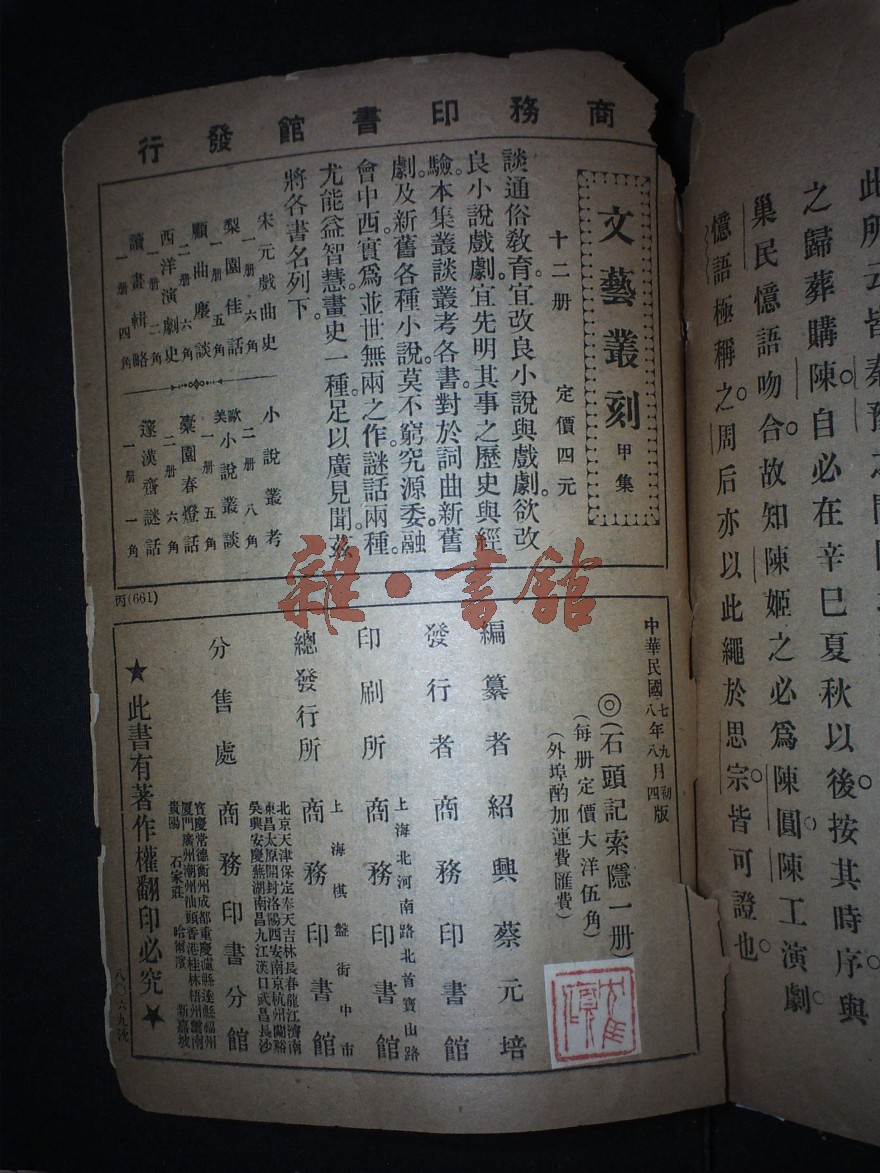 此所云皆秦豫之間
之歸葬購陳自必在辛巳夏秋以後。按其時序。與
巢民憶語吻合。故知陳姬之必爲陳圓。陳工演劇。
憶語極稱之。周后亦以此繩於思宗。皆可證也。
商務印書館發行
文藝叢刻 甲集
十二册 定價四元
談通俗敎育。宜改良小說與戲劇。欲改
良小說戲劇。宜先明其事之歷史與經
驗。本集叢談叢考各書。對於詞曲新舊
劇。及新舊各種小說。莫不窮究源委。融
會中西。實爲並世無兩之作。謎話兩種。
尤能益智慧。畫史一種。足以廣見聞。茲
將各書名列下。
宋元戲曲史 一册 六角
梨園佳話 一册 五角
顧曲麈談 二册 六角
西洋演劇史 一册 二角
讀畫輯略 一册 四角
小說叢考 二册 八角
歐美小說叢談 一册 五角
橐園春燈話 二册 六角
邃漢齋謎話 一册 一角
丙(661)
中華民國七年九月初版
八年八月四版
◎(石頭記索隱一册)
(每册定價大洋伍角)
(外埠酌加運費匯費)
編纂者 紹興蔡元培
發行者 商務印書館
上海北河南路北首寶山路
印刷所 商務印書館
上海棋盤街中市
總發行所 商務印書館
北京天津保定奉天吉林長春龍江濟南
東昌太原開封洛陽西安南京杭州蘭谿
吳興安慶蕪湖南昌九江漢口武昌長沙
分售處 商務印書分館
寶慶常德衡州成都重慶瀘縣達縣福州
厦門廣州潮州汕頭香港桂林梧州雲南
貴陽 石家莊 哈爾濱 新嘉坡
★此書有著作權翻印必究★
八〇六九號
雜·書館